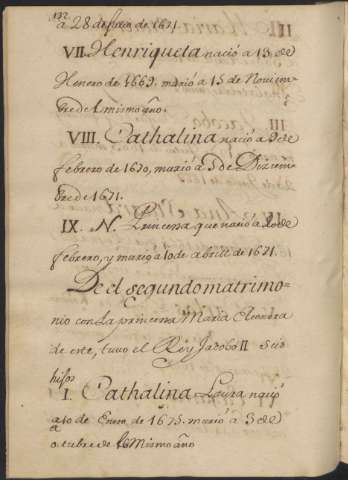 m a 28 de de 1671
VII. Henriqueta nació a 13 de
Henero de 1669. murió a 15 de Noviem
bre del mismo año.
VIII. Cathalina nació a 9 de
febrero de 1670, murió a 5 de Diziem
bre de 1671.
IX. N. Princesa que nació a de
febrero, y murio a 10 de abril de 1671.
De el segundo matrimo-
nio con La princesa Maria Eleonora
de este, tuvo el Rey Jacobo II seis
hijos
I. Cathalina Laura naçio
a 10 de Enero de 1675. murió a 3 de
octubre de el Mismo año